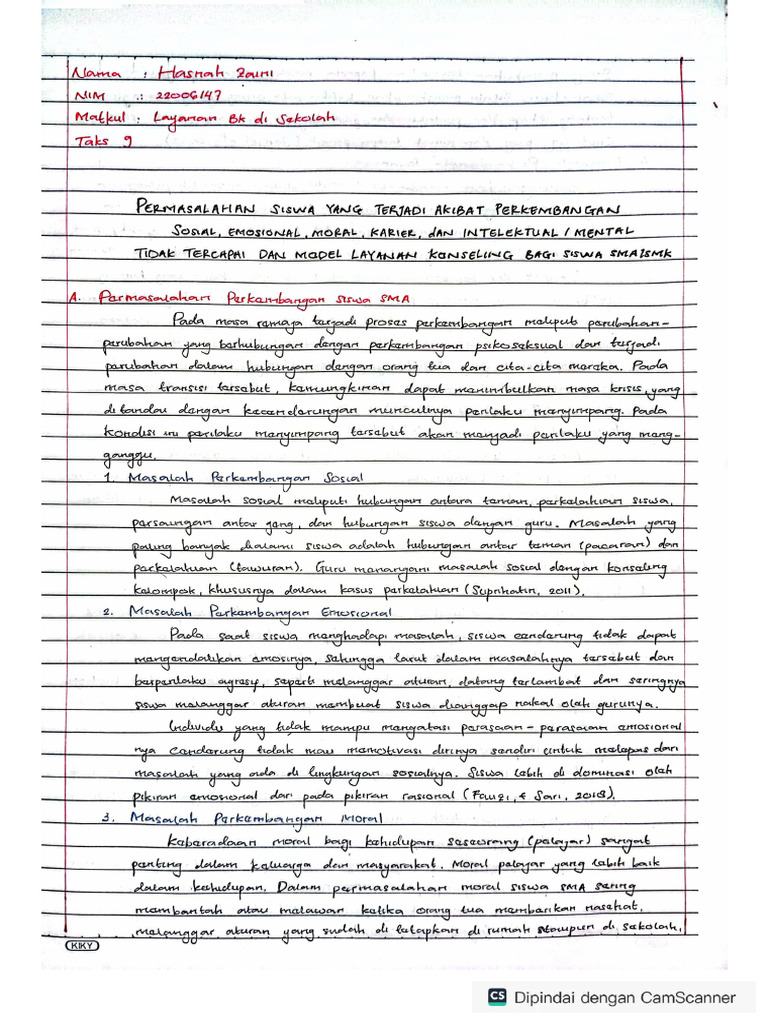 Nama : Hasnah Zaini
NIM : 22006147
Matkul : Layanan BK di Sekolah
Taks 9
PERMASALAHAN SISWA YANG TERJADI AKIBAT PERKEMBANGAN
SOSIAL, EMOSIONAL, MORAL, KARIER, DAN INTELEKTUAL / MENTAL
TIDAK TERCAPAI DAN MODEL LAYANAN KONSELING BAGI SISWA SMA/SMK
A. Permasalahan Perkembangan siswa SMA
Pada masa remaja terjadi proses perkembangan meliputi perubahan-
perubahan yang berhubungan dengan perkembangan psikoseksual dan terjadi
perubahan dalam hubungan dengan orang tua dan cita-cita mereka. Pada
masa transisi tersebut, kemungkinan dapat menimbulkan masa krisis, yang
ditandai dengan kecenderungan munculnya perilaku menyimpang. Pada
kondisi ini perilaku menyimpang tersebut akan menjadi perilaku yang meng-
ganggu.
1. Masalah Perkembangan Sosial
Masalah sosial meliputi hubungan antara teman, perkelahian siswa,
persaingan antar geng, dan hubungan siswa dengan guru. Masalah yang
paling banyak dialami siswa adalah hubungan antar teman (pacaran) dan
perkelahian (tawuran). Guru menangani masalah sosial dengan konseling
kelompok, khususnya dalam kasus perkelahian (Suprihatin, 2011).
2. Masalah Perkembangan Emosional
Pada saat siswa menghadapi masalah, siswa cenderung tidak dapat
mengendalikan emosinya, sehingga larut dalam masalahnya tersebut dan
berperilaku agresif, seperti melanggar aturan, datang terlambat dan seringnya
siswa melanggar aturan membuat siswa dianggap nakal oleh gurunya.
Individu yang tidak mampu mengatasi perasaan-perasaan emosional
nya cenderung tidak mau memotivasi dirinya sendiri untuk melepas dari
masalah yang ada di lingkungan sosialnya. Siswa lebih di dominasi oleh
pikiran emosional dari pada pikiran rasional (Fauzi, & Sari, 2018).
3. Masalah Perkembangan Moral
Keberadaan moral bagi kehidupan seseorang (pelajar) sangat
penting dalam keluarga dan masyarakat. Moral pelajar yang lebih baik
dalam kehidupan. Dalam permasalahan moral siswa SMA sering
membantah atau melawan ketika orang tua memberikan nasehat,
melanggar aturan yang sudah di tetapkan di rumah ataupun di sekolah,
KIKY
CS Dipindai dengan CamScanner